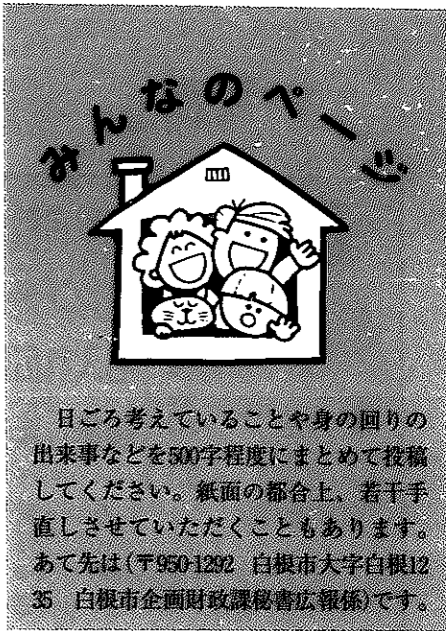 みんなのページ
日ごろ考えていることや身の回りの
出来事などを500字程度にまとめて投稿
してください。紙面の都合上、若干手
直しさせていただくこともあります。
あて先は(〒950-1292　白根市大字白根12
35　白根市企画財政課秘書広報係)です。